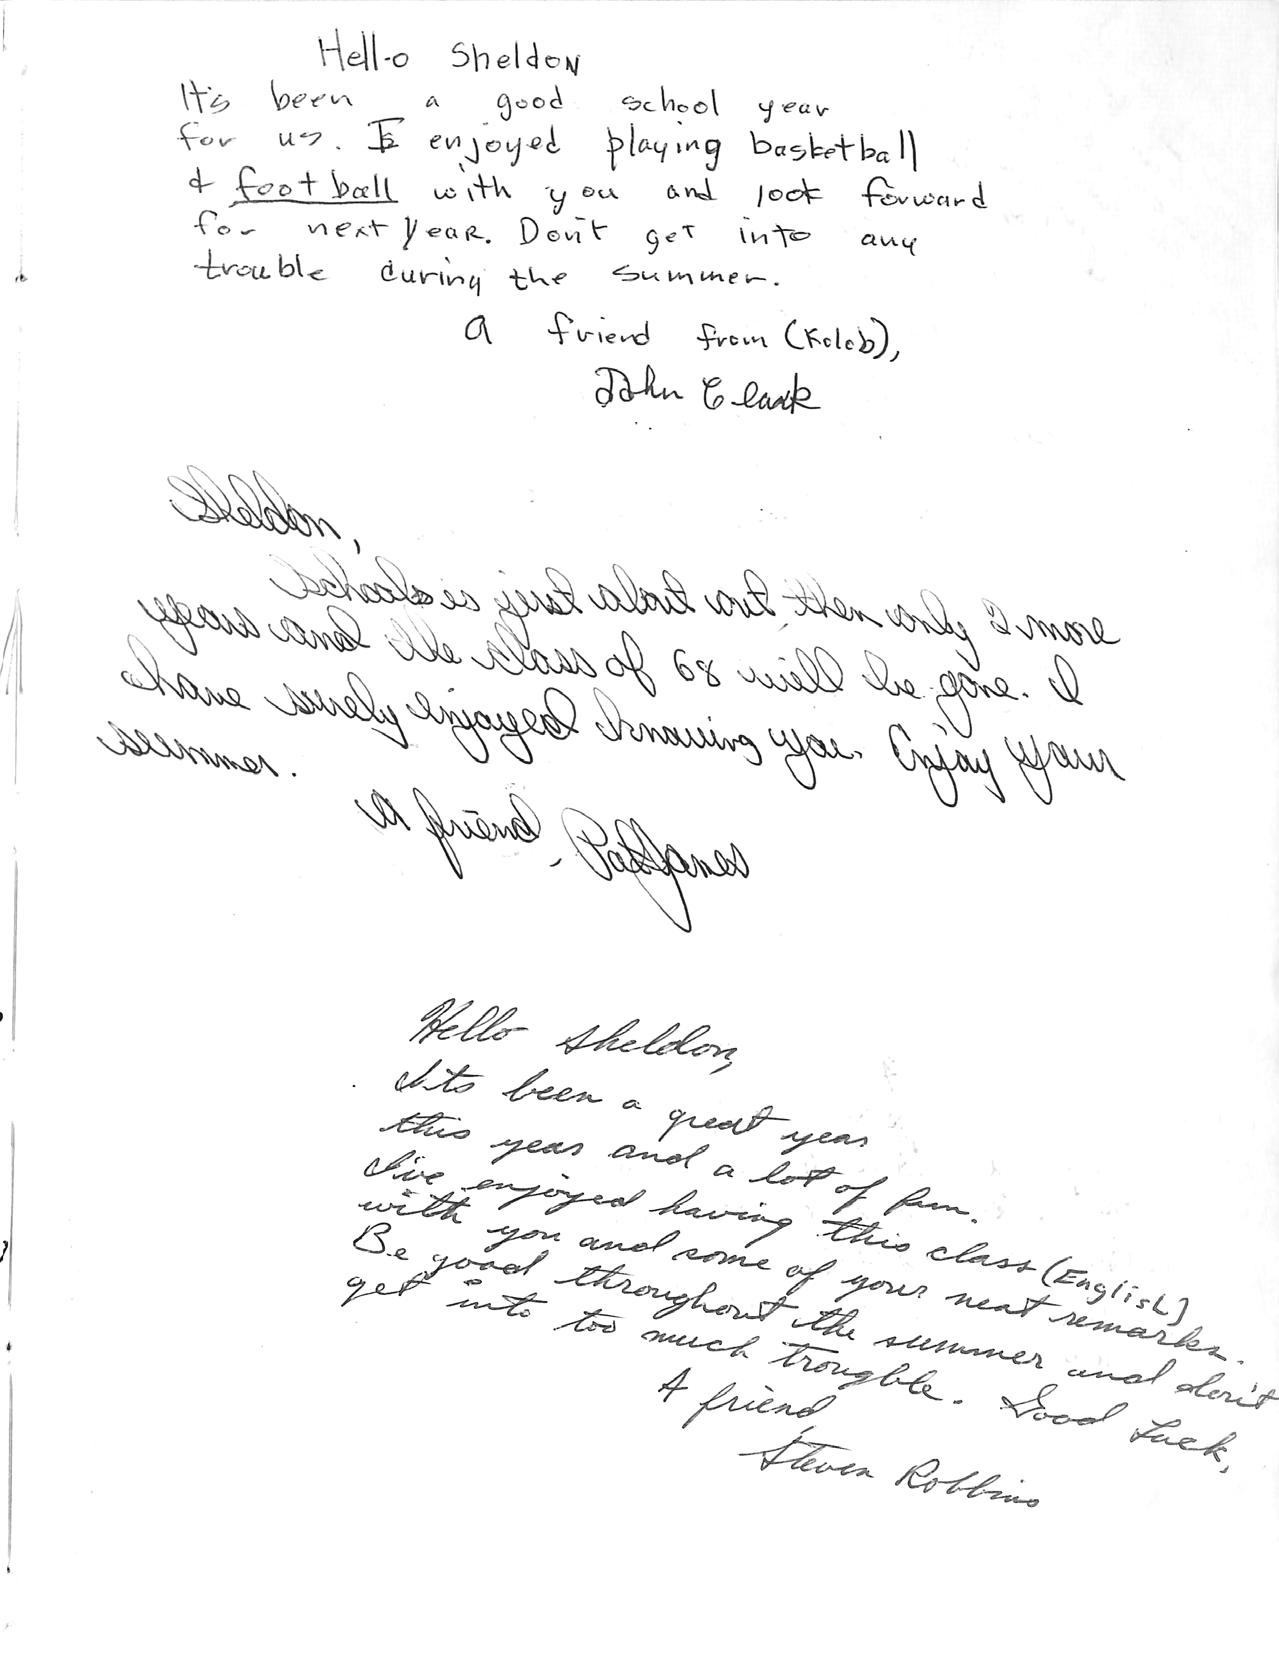 Hello Sheldon
It's been a good school year
for us. I enjoyed playing basketball
& football with you and look forward
for next year. Don't get into any
trouble during the summer.
A friend from (Kolob),
John Clark
Sheldon,
School is just about out then only 2 more
years and the class of 68 will be gone. I
have surely enjoyed knowing you. Enjoy your
summer.
A friend, Pat Janes
Hello Sheldon,
Its been a great year
this year and a lot of fun.
I've enjoyed having this class (English)
with you and some of your neat remarks.
Be good throughout the summer and don't
get into too much trougble. Good Luck,
A friend,
Steven Robbins